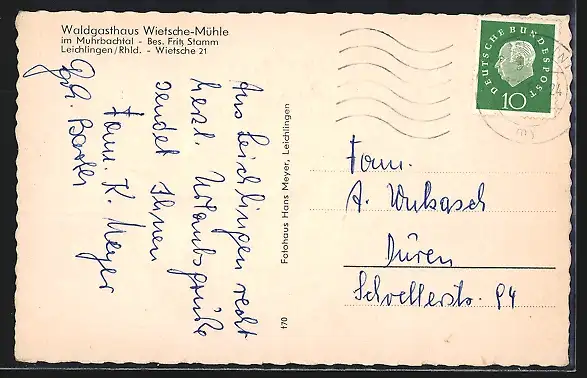 Waldgasthaus Wietsche-Mühle
im Muhrbachtal - Bes. Fritz Stamm
Leichlingen/Rhld. - Wietsche 21
Aus Leichlingen recht
herzl. Urlaubsgrüße
sendet Ihnen
Fam. K. Meyer
Fotohaus Hans Meyer, Leichlingen
170
DEUTSCHE BUNDESPOST
10
Fam.
A. Wukasch
Düren
Schoellerstr. 94